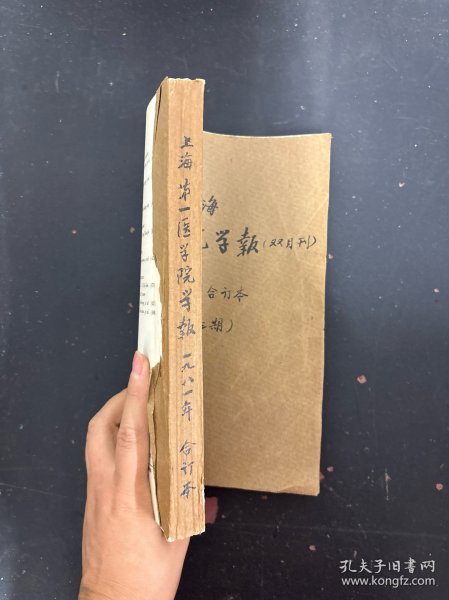 上海第一医学院学报 一九八一年 合订本
海
学报(双月刊)
合订本
期)
孔夫子旧书网
www.kongfz.com